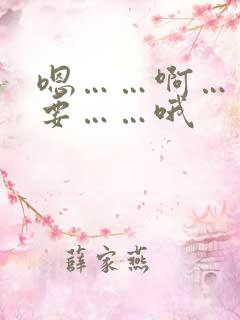 嗯……啊…
要……哦
薛家燕